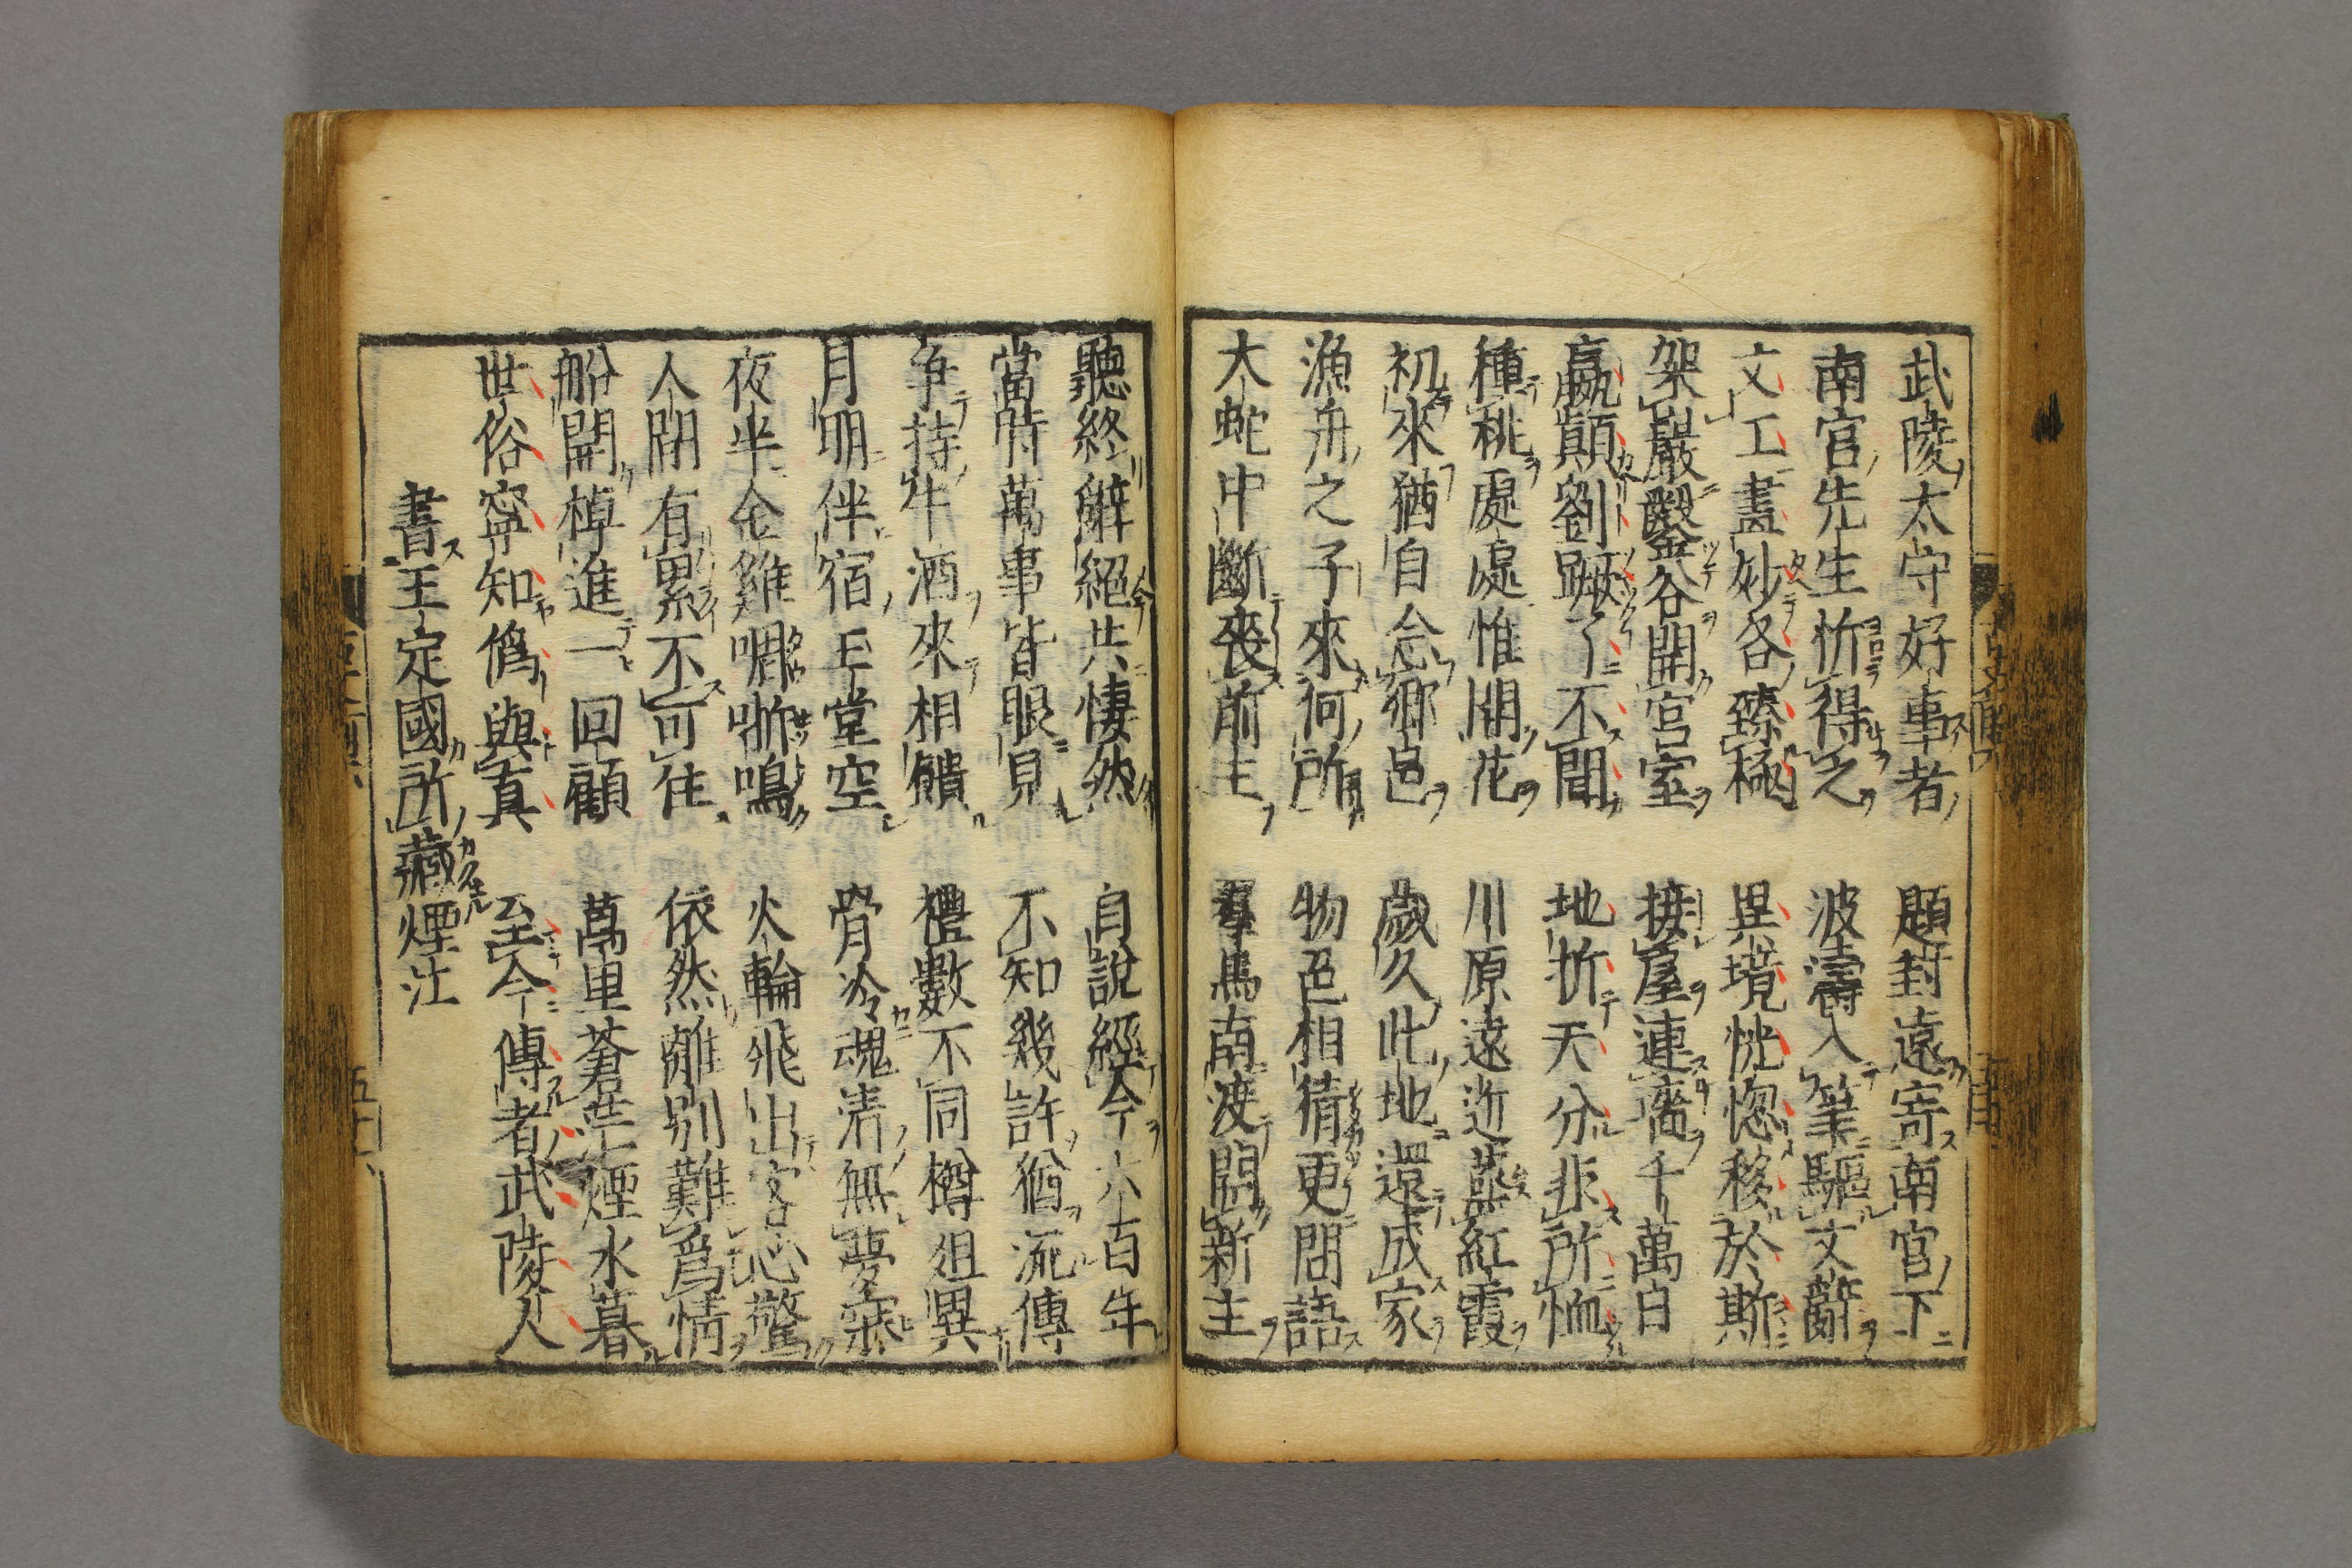 武陵太守好事者　題封遠寄南官下
南宮先生忻得之　波濤入筆驅文辭
文工畫妙各臻極　異境恍惚移於斯
架巖鑿谷開宮室　接屋連墻千萬日
嬴顛劉蹶了不聞　地坼天分非所恤
種桃處處惟開花　川原遠近蒸紅霞
初來猶自念鄉邑　歲久此地還成家
漁舟之子來何所　物色相猜更問語
大蛇中斷喪前主　羣馬南渡開新主
聽終辭絕共悽然　自說經今六百年
當時萬事皆眼見　不知幾許猶流傳
爭持牛酒來相饋　禮數不同樽俎異
月明伴宿玉堂空　骨冷魂清無夢寐
夜半金雞啁哳鳴　火輪飛出客心驚
人間有累不可住　依然離別難爲情
船開棹進一回顧　萬里蒼茫煙水暮
世俗寧知僞與真　至今傳者武陵人
書王定國所藏煙江